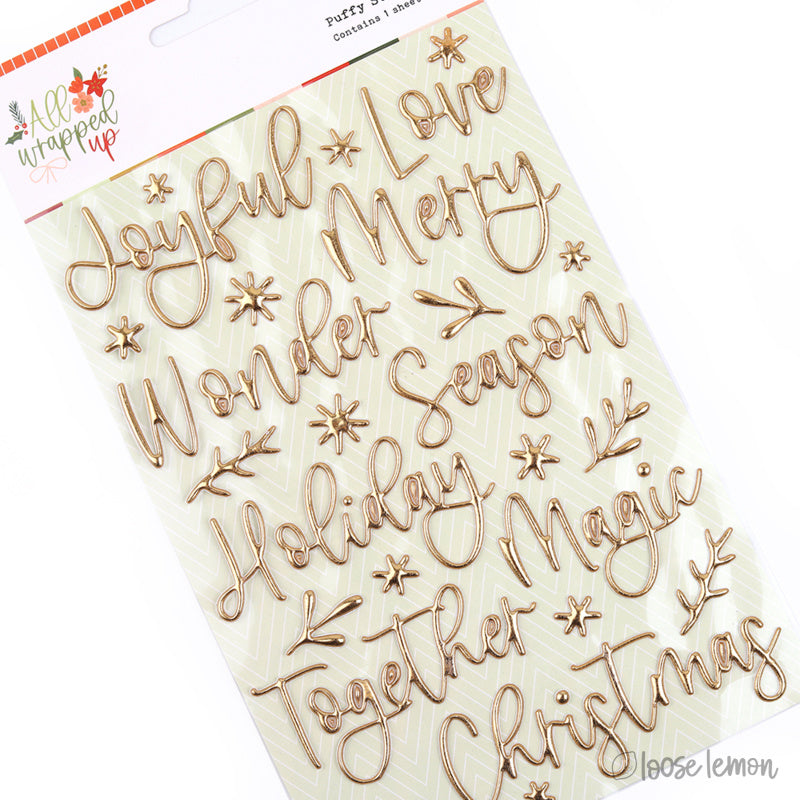 Puffy
Contains 1 sheet
All
wrapped
up
Love
Joyful
Merry
Wonder
Season
Holiday
Magic
Together
Christmas
loose lemon